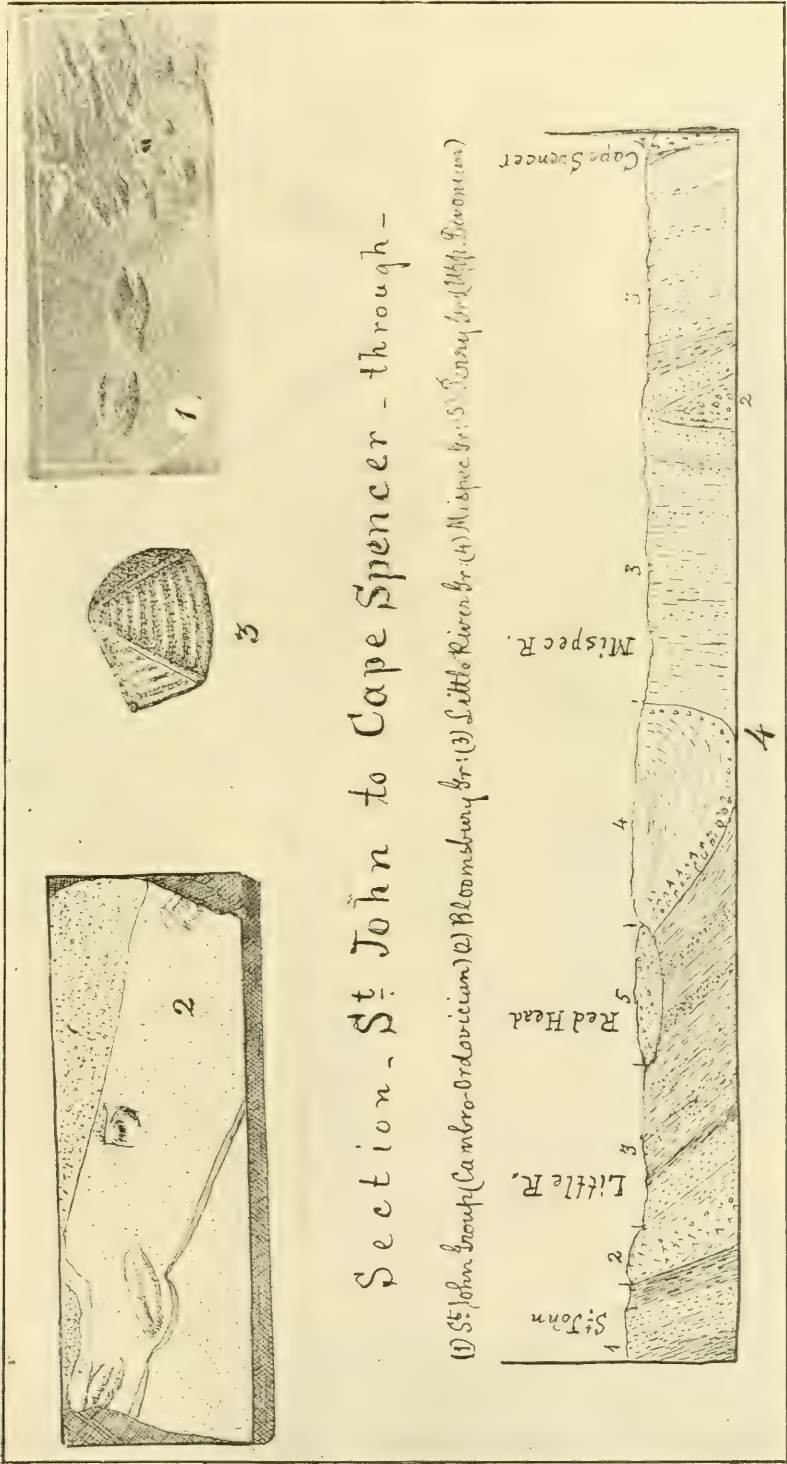 1.
3
2
Section - St. John to Cape Spencer - through -
(1) St. John Group (Cambro-Ordovicium) (2) Bloomsbury Gr: (3) Little River Gr: (4) Mispec Gr: 5 Perry Gr (Upp. Devonium)
St. John
Little R.
Red Head
Mispec R.
Cape Spencer
1
2
3
5
4
3
5
2
4